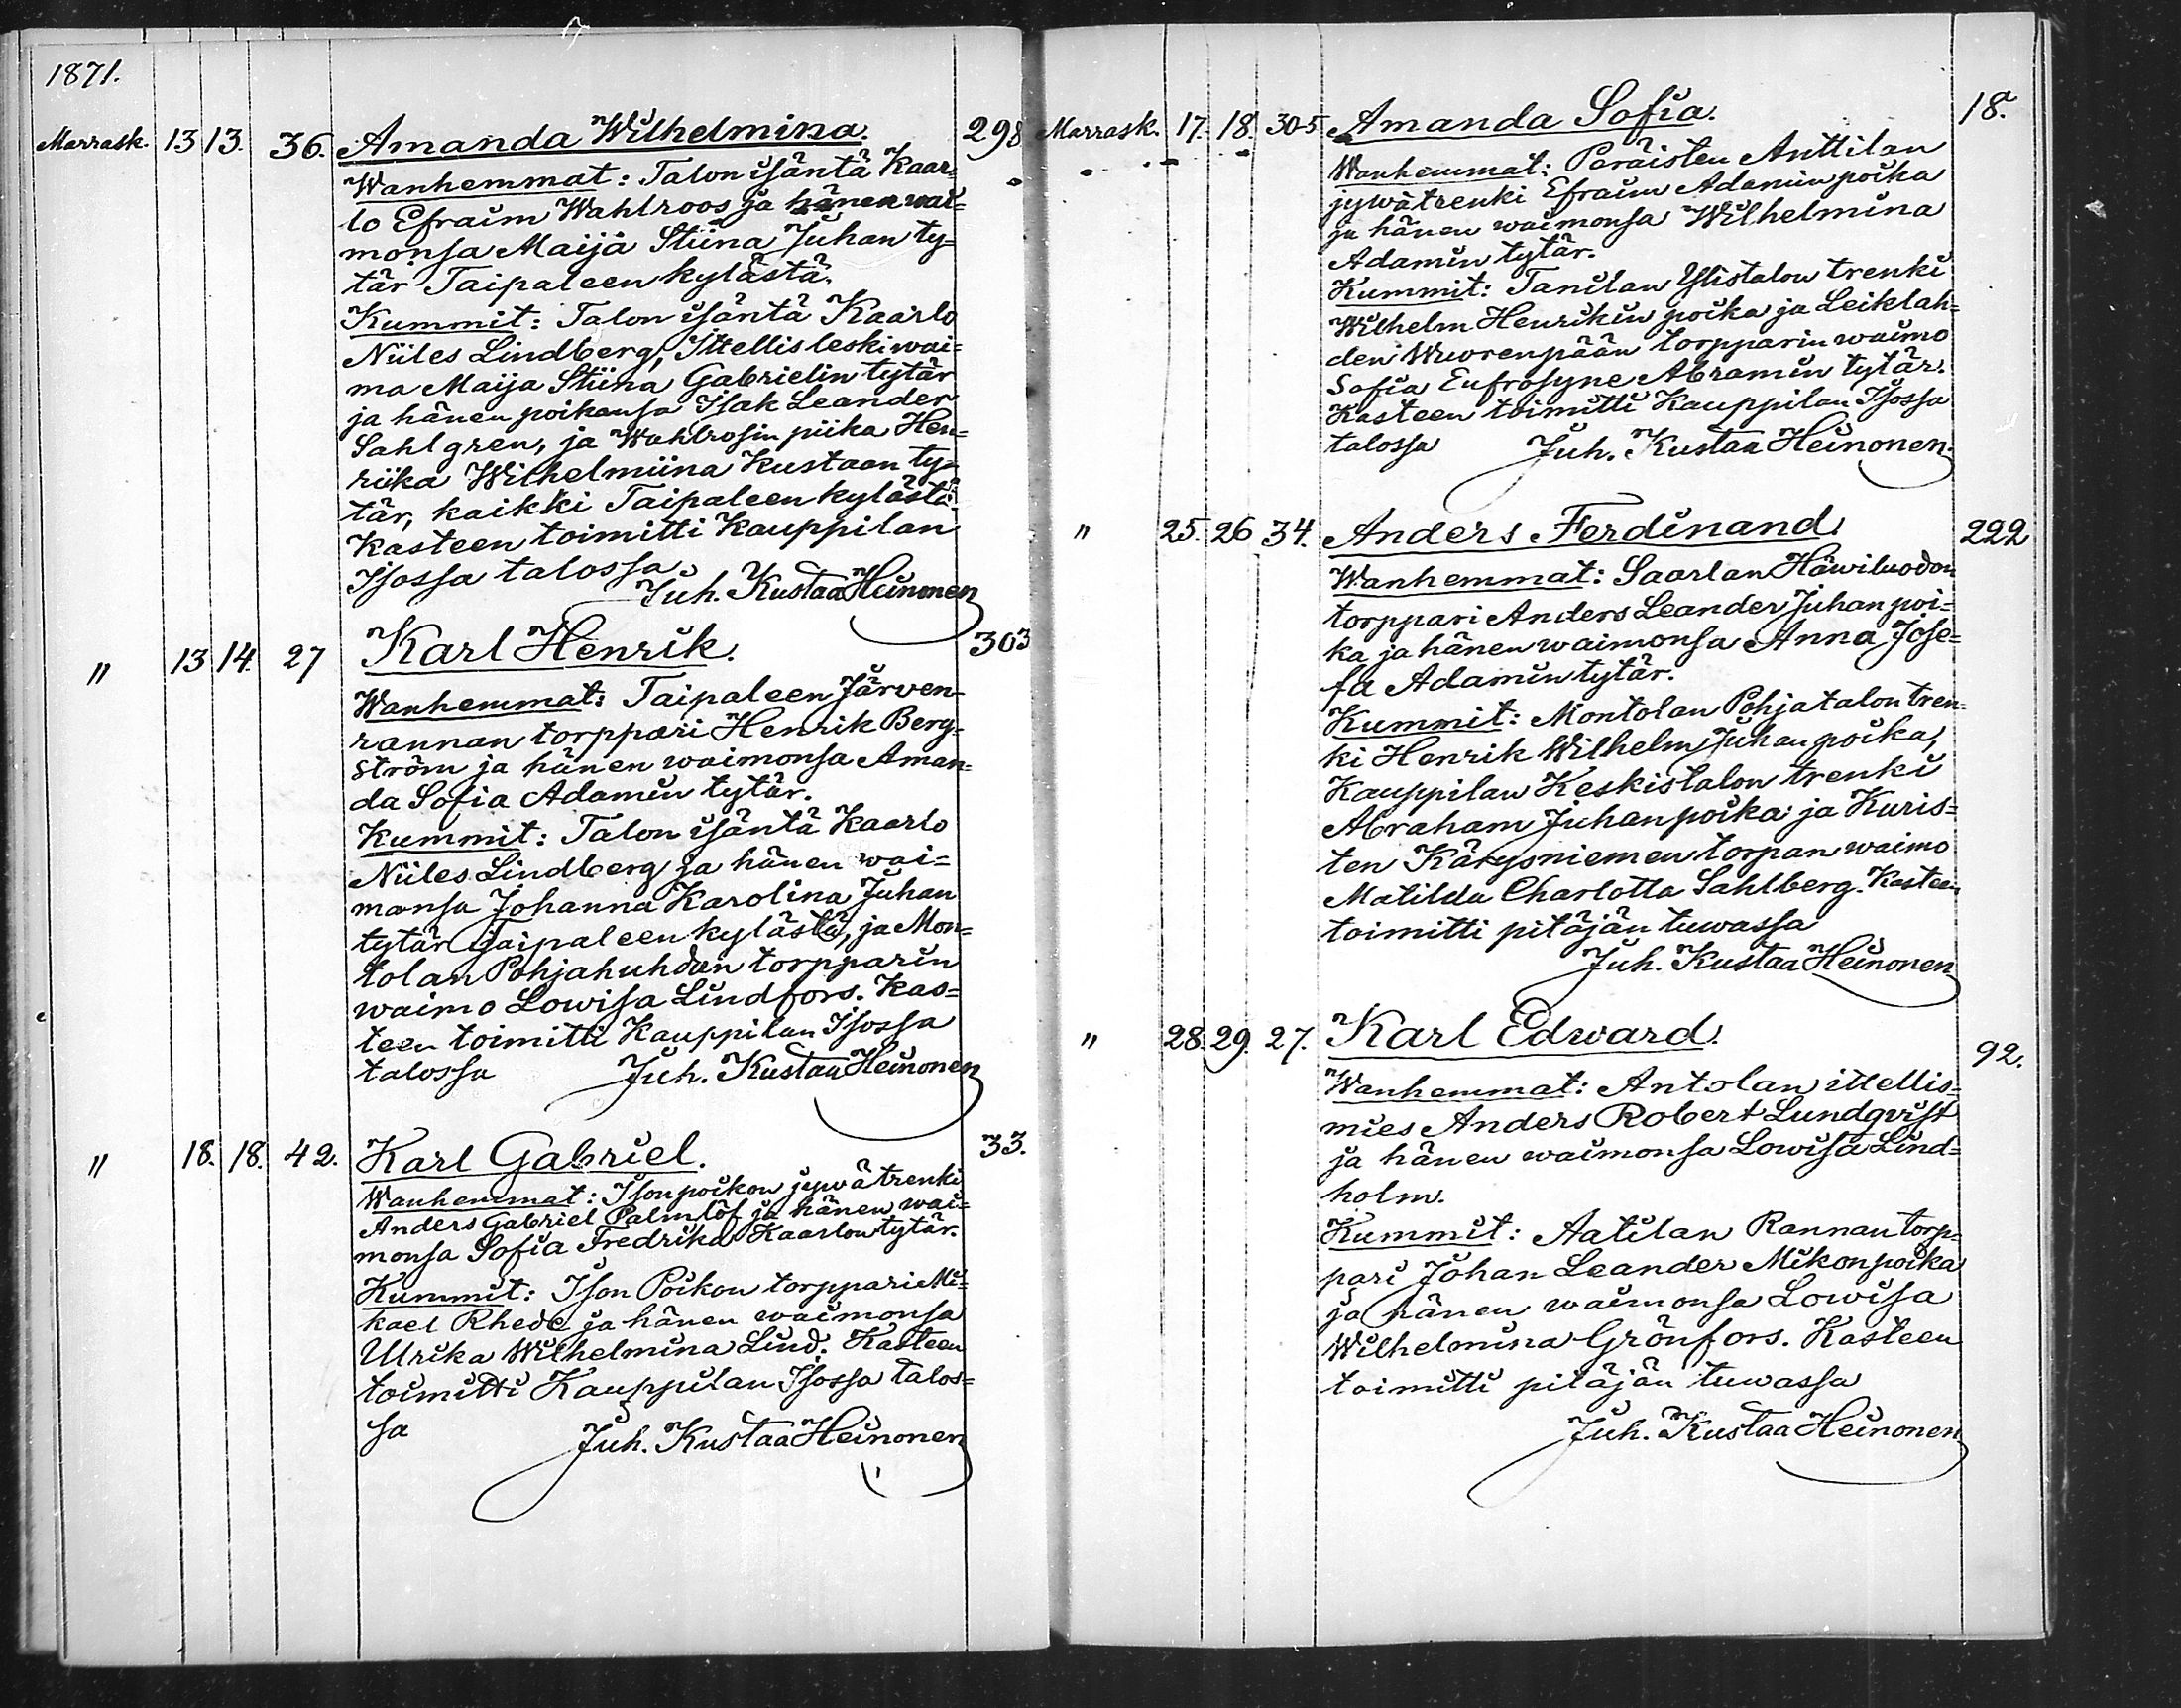 1871.
Marrask. 13 13. 36. Amanda Wilhelmina. 298
Wanhemmat: Talon isäntä Kaar=
lo Efraim Wahlroos ja hänen wai=
monsa Maija Stiina Juhan ty=
tär Taipaleen kylästä.
Kummit: Talon isäntä Kaarlo
Niiles Lindberg, Ittellisleskiwai=
mo Maija Stiina Gabrielin tytär
ja hänen poikansa Isak Leander
Sahlgren, ja Wahlrosin piika Hen=
riika Wilhelmiina Kustaan ty=
tär, kaikki Taipaleen kylästä.
Kasteen toimitti Kauppilan
Isossa talossa
Juh. Kustaa Heinonen
" 13 14. 27 Karl Henrik. 303
Wanhemmat: Taipaleen Järwen=
rannan torppari Henrik Berg=
ström ja hänen waimonsa Aman=
da Sofia Adamin tytär.
Kummit: Talon isäntä Kaarlo
Niiles Lindberg ja hänen wai=
monsa Johanna Karolina Juhan
tytär Taipaleen kylästä, ja Mon=
tolan Pohjahuhdan torpparin
waimo Lowisa Lindfors. Kas=
teen toimitti Kauppilan Isossa
talossa Juh. Kustaa Heinonen
" 18. 18. 42. Karl Gabriel. 33.
Wanhemmat: Isonpoikon jywätrenki
Anders Gabriel Palmlöf ja hänen wai=
monsa Sofia Fredrika Kaarlon tytär.
Kummit: Ison Poikon torppari Mi=
kael Rhede ja hänen waimonsa
Ulrika Wilhelmina Lind. Kasteen
toimitti Kauppilan Isossa talos=
sa Juh. Kustaa Heinonen
Marrask. 17. 18. 305 Amanda Sofia. 18.
Wanhemmat: Paräisten Anttilan
jywätrenki Efraim Adamin poika
ja hänen waimonsa Wilhelmina
Adamin tytär.
Kummit: Tanilan Ylistalon trenki
Wilhelm Henrikin poika ja Leiklah=
den Wuorenpään torpparin waimo
Sofia Eufrosyne Abramin tytär.
Kasteen toimitti Kauppilan Isossa
talossa Juh. Kustaa Heinonen.
" 25. 26 34. Anders Ferdinand. 222
Wanhemmat: Saarlan Häwiluodon
torppari Anders Leander Juhan poi=
ka ja hänen waimonsa Anna Jose=
fa Adamin tytär.
Kummit: Montolan Pohjatalon tren=
ki Henrik Wilhelm Juhan poika,
Kauppilan Keskistalon trenki
Abraham Juhanpoika ja Kuris=
ten Kärysniemen torpan waimo
Matilda Charlotta Sahlberg. Kasteen
toimitti pitäjän tuwassa
Juh. Kustaa Heinonen
" 28. 29. 27. Karl Edward. 92.
Wanhemmat: Antolan ittellis=
mies Anders Robert Lundqvist
ja hänen waimonsa Lowisa Lind=
holm.
Kummit: Aatilan Rannan torp=
pari Johan Leander Mikonpoika
ja hänen waimonsa Lowisa
Wilhelmina Grönfors. Kasteen
toimitti pitäjän tuwassa
Juh. Kustaa Heinonen